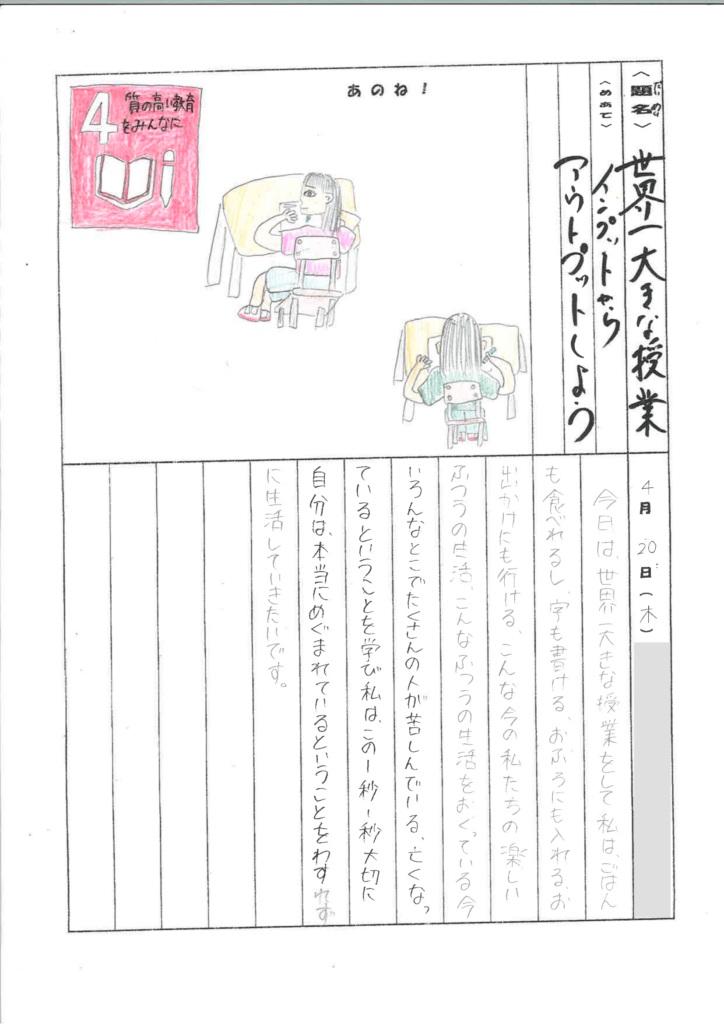 〈題名〉世界一大きな授業
だいめい
〈めあて〉インプットから
アウトプットしよう
あのね！
4 質の高い教育
をみんなに
4月20日(木)
今日は、世界一大きな授業をして私は、ごはん
も食べれるし、字も書ける、おふろにも入れる、お
出かけにも行ける、こんな今の私たちの楽しい
ふつうの生活、こんなふつうの生活をおくっている今
いろんなとこでたくさんの人が苦しんでいる、亡くなっ
ているということを学び私は、この1秒1秒大切に
自分は、本当にめぐまれているということをわすれず
に生活していきたいです。